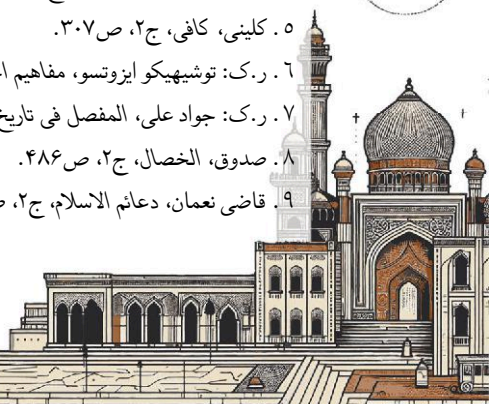 ٥. کلینی، کافی، ج٢، ص٣٠٧.
٦. ر.ک: توشیهیکو ایزوتسو، مفاهیم
٧. ر.ک: جواد علی، المفصل فی تاریخ
٨. صدوق، الخصال، ج٢، ص۴٨۶.
٩. قاضی نعمان، دعائم الاسلام، ج٢،